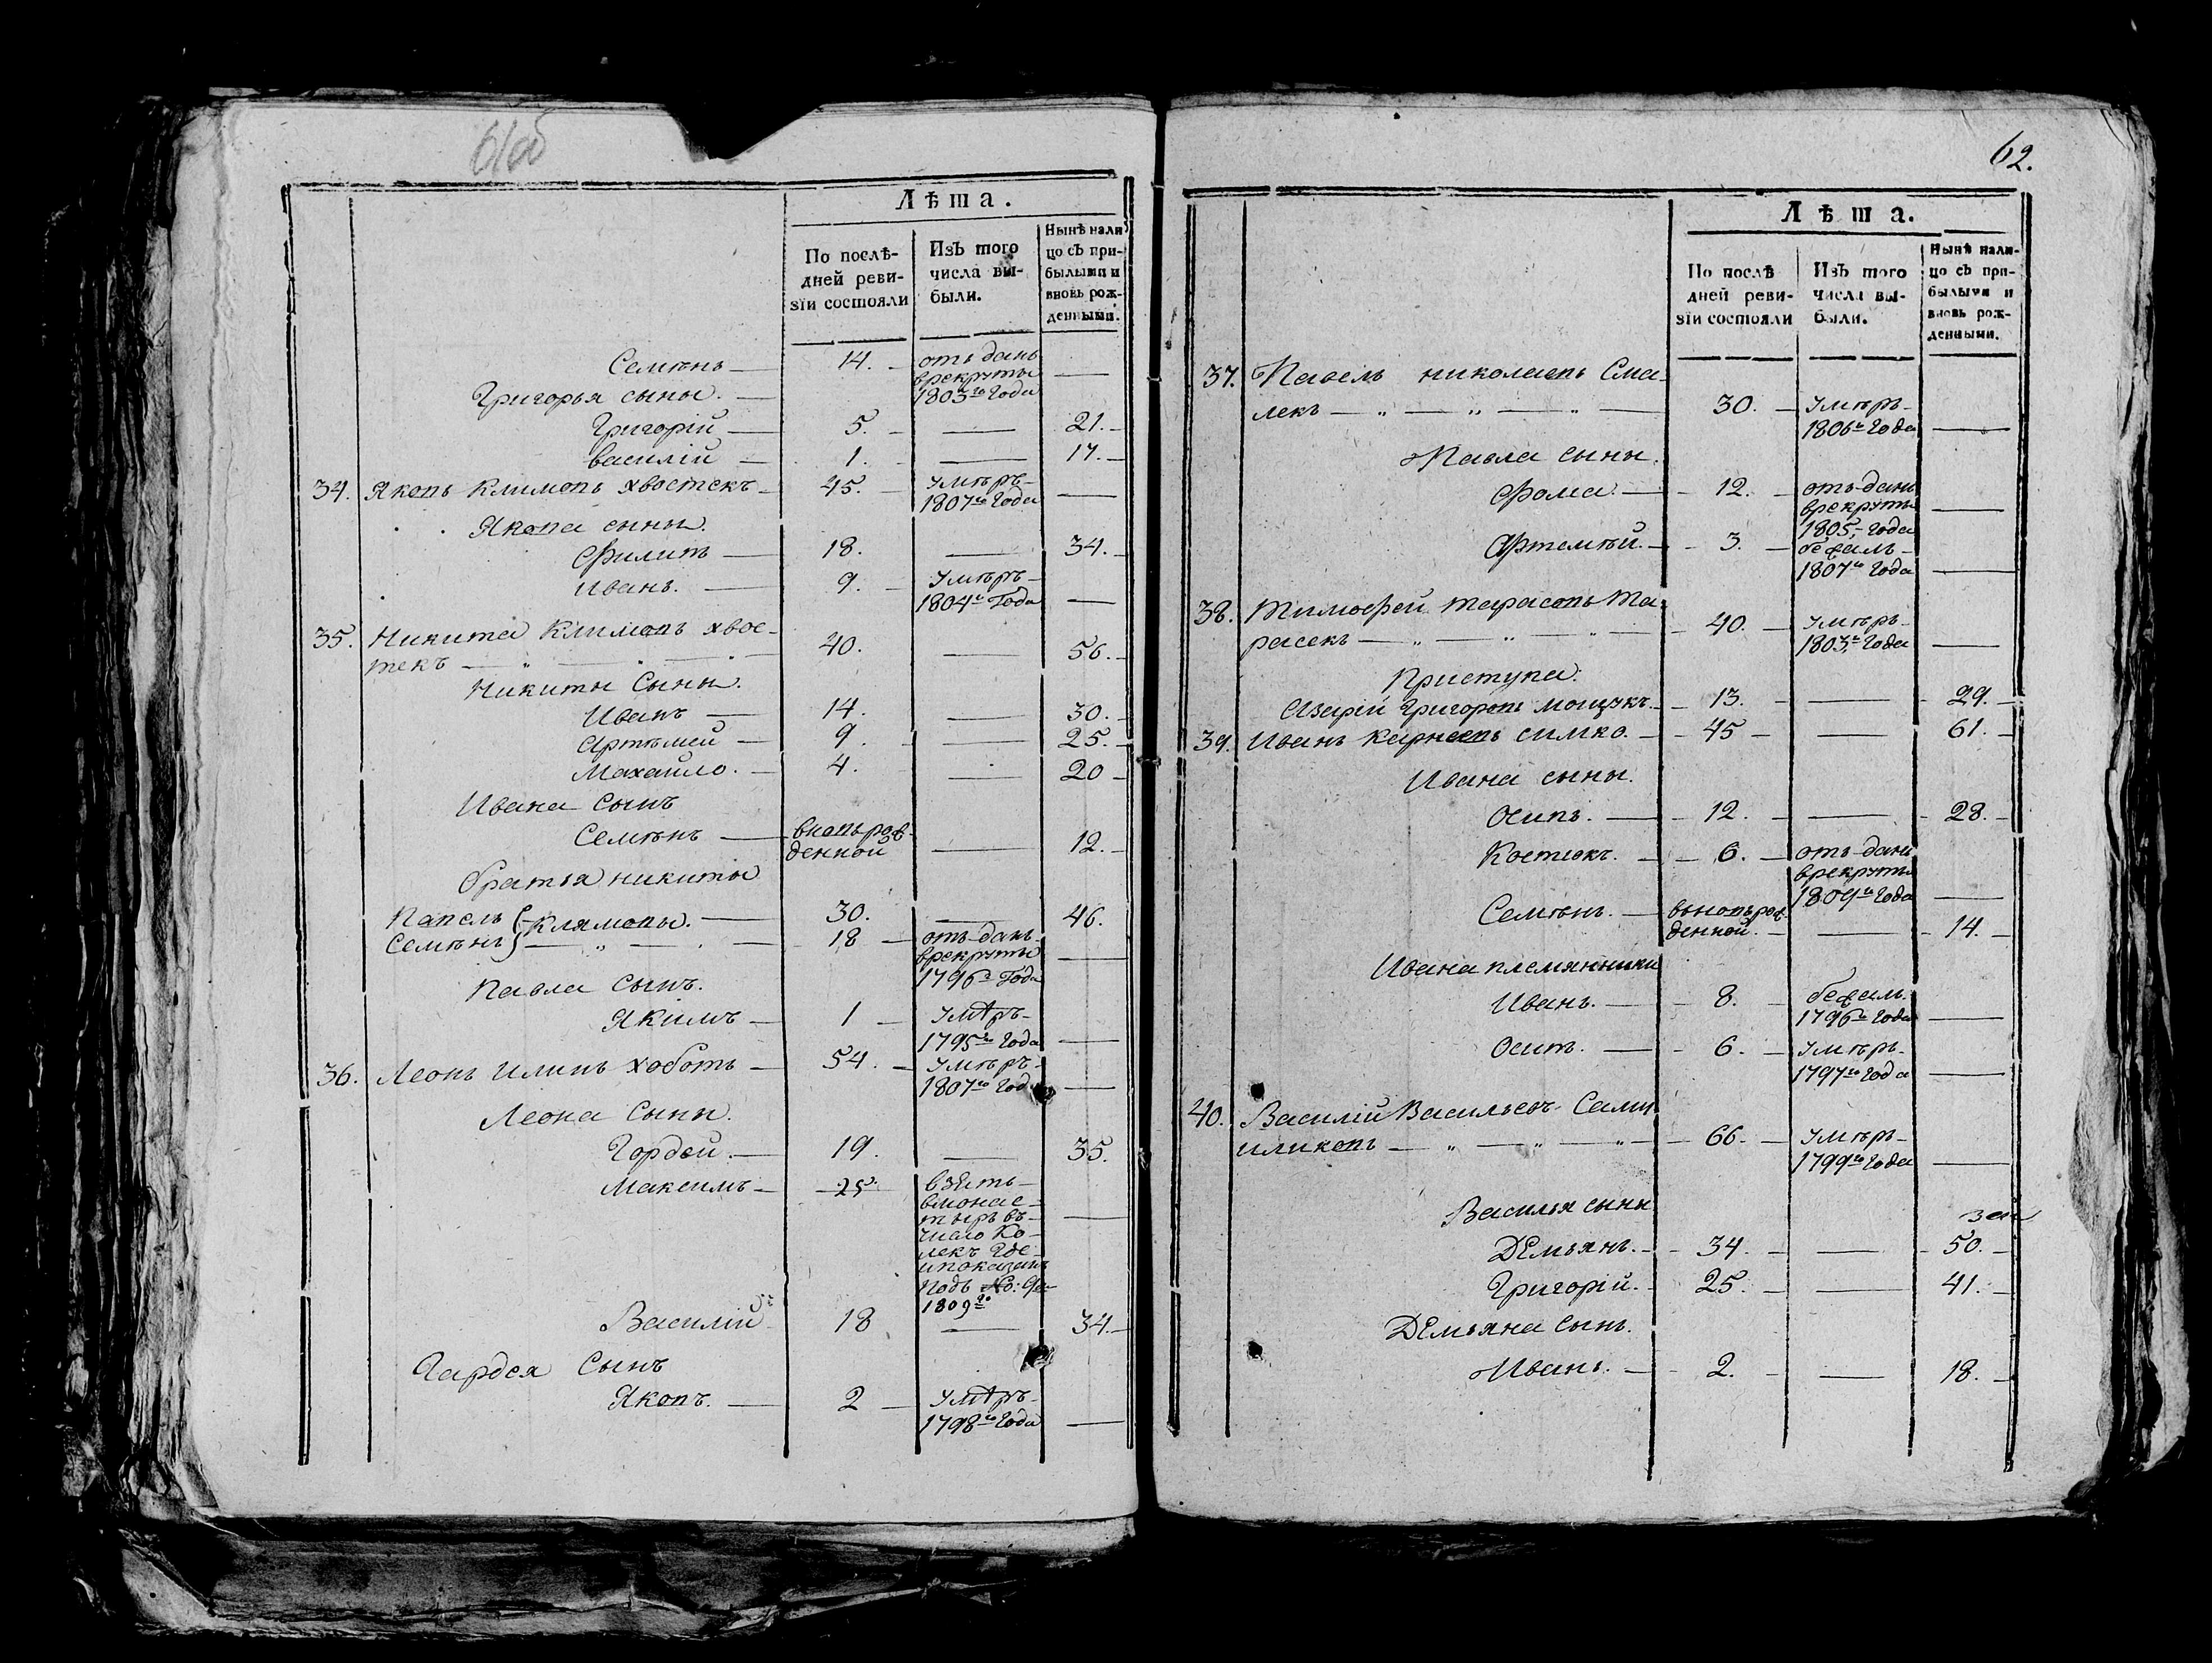 61об
Лѣта.
По послѣ-
дней реви-
зїи состояли
Изъ того
числа вы-
были.
Нынѣ нали
цо съ при-
былыми и
вновь рож-
денными.
Семѣнъ — 14. — отъданъ
врекруты
1803го Года —
Григорья сыны. —
Григорій — 5. — — 21. —
василій — 1. — — 17. —
34. Яковъ Климовъ хвостекъ — 45. — Умѣръ —
1807го Года —
Якова сыны.
Филипъ — 18. — 34. —
иванъ. — 9. — Умѣръ —
1804го Года —
35. Никита Климовъ хвос-
текъ — „ — „ — „ — 40. — 56. —
Никиты Сыны.
Иванъ — 14. — 30. —
Артѣмей — 9. — — 25. —
Махайло. — 4. — 20 —
Ивана Сынъ
Семѣнъ — вновьрож-
денной — 12. —
братья никиты
Павелъ Клямовы. — 30. — 46. —
Семѣнъ — „ — 18 — отъданъ —
врекруты
1796го Года —
Павла Сынъ.
Якимъ — 1 — Умѣръ —
1795го Года —
36. Леонъ Илинъ Хоботъ — 54. — Умѣръ —
1807го Года —
Леона Сыны.
Гордей. — 19. — 35.
Максимъ — 25. взятъ —
вмонас-
тырь въ —
число Ко-
лекъ Где-
ипоказанъ
Подъ No:
1809го —
Василій 18 — 34. —
Гардея Сынъ
Яковъ. — 2 — Умѣръ —
1798го Года —
62.
Лѣта.
По послѣ
дней реви-
зїи состояли
Изъ того
числа вы-
были.
Нынѣ нали-
цо съ при-
былыми и
вновь рож-
денными.
37. Павелъ николаевъ Сма-
лекъ — „ — „ — „ — 30. — Умѣръ —
1806го Года —
Павла сыны.
Фома. — 12. — отъданъ
врекруты
1805, Года —
Артемѣй. — 3. — бежалъ —
1807го Года —
38. Тимофей тарасовъ Та-
расекъ — „ — „ — 40. — Умѣръ —
1803го Года —
Приступа.
Азарій Григоровъ мощукъ. — 13. — — 29. —
39. Иванъ Карнеевъ симко. — 45 — — 61. —
Ивана сыны.
Осипъ. — 12. — — 28. —
Костюкъ. — 6. — отъданъ
врекруты
1809го Года —
Семѣнъ. — вновьрож-
денной. — — 14. —
Ивана племянники
Иванъ. — 8. — бежалъ.
1796го Года —
Осипъ. — 6. — Умѣръ —
1797го Года —
40. Василій Васильевъ Сами
иликовъ — „ — „ — „ — 66. — Умѣръ —
1799го Года —
Василья сыны
Демьянъ. — 34. — — 50. —
Григорій. — 25. — — 41. —
Демьяна Сынъ.
Иванъ. — 2. — — 18. —